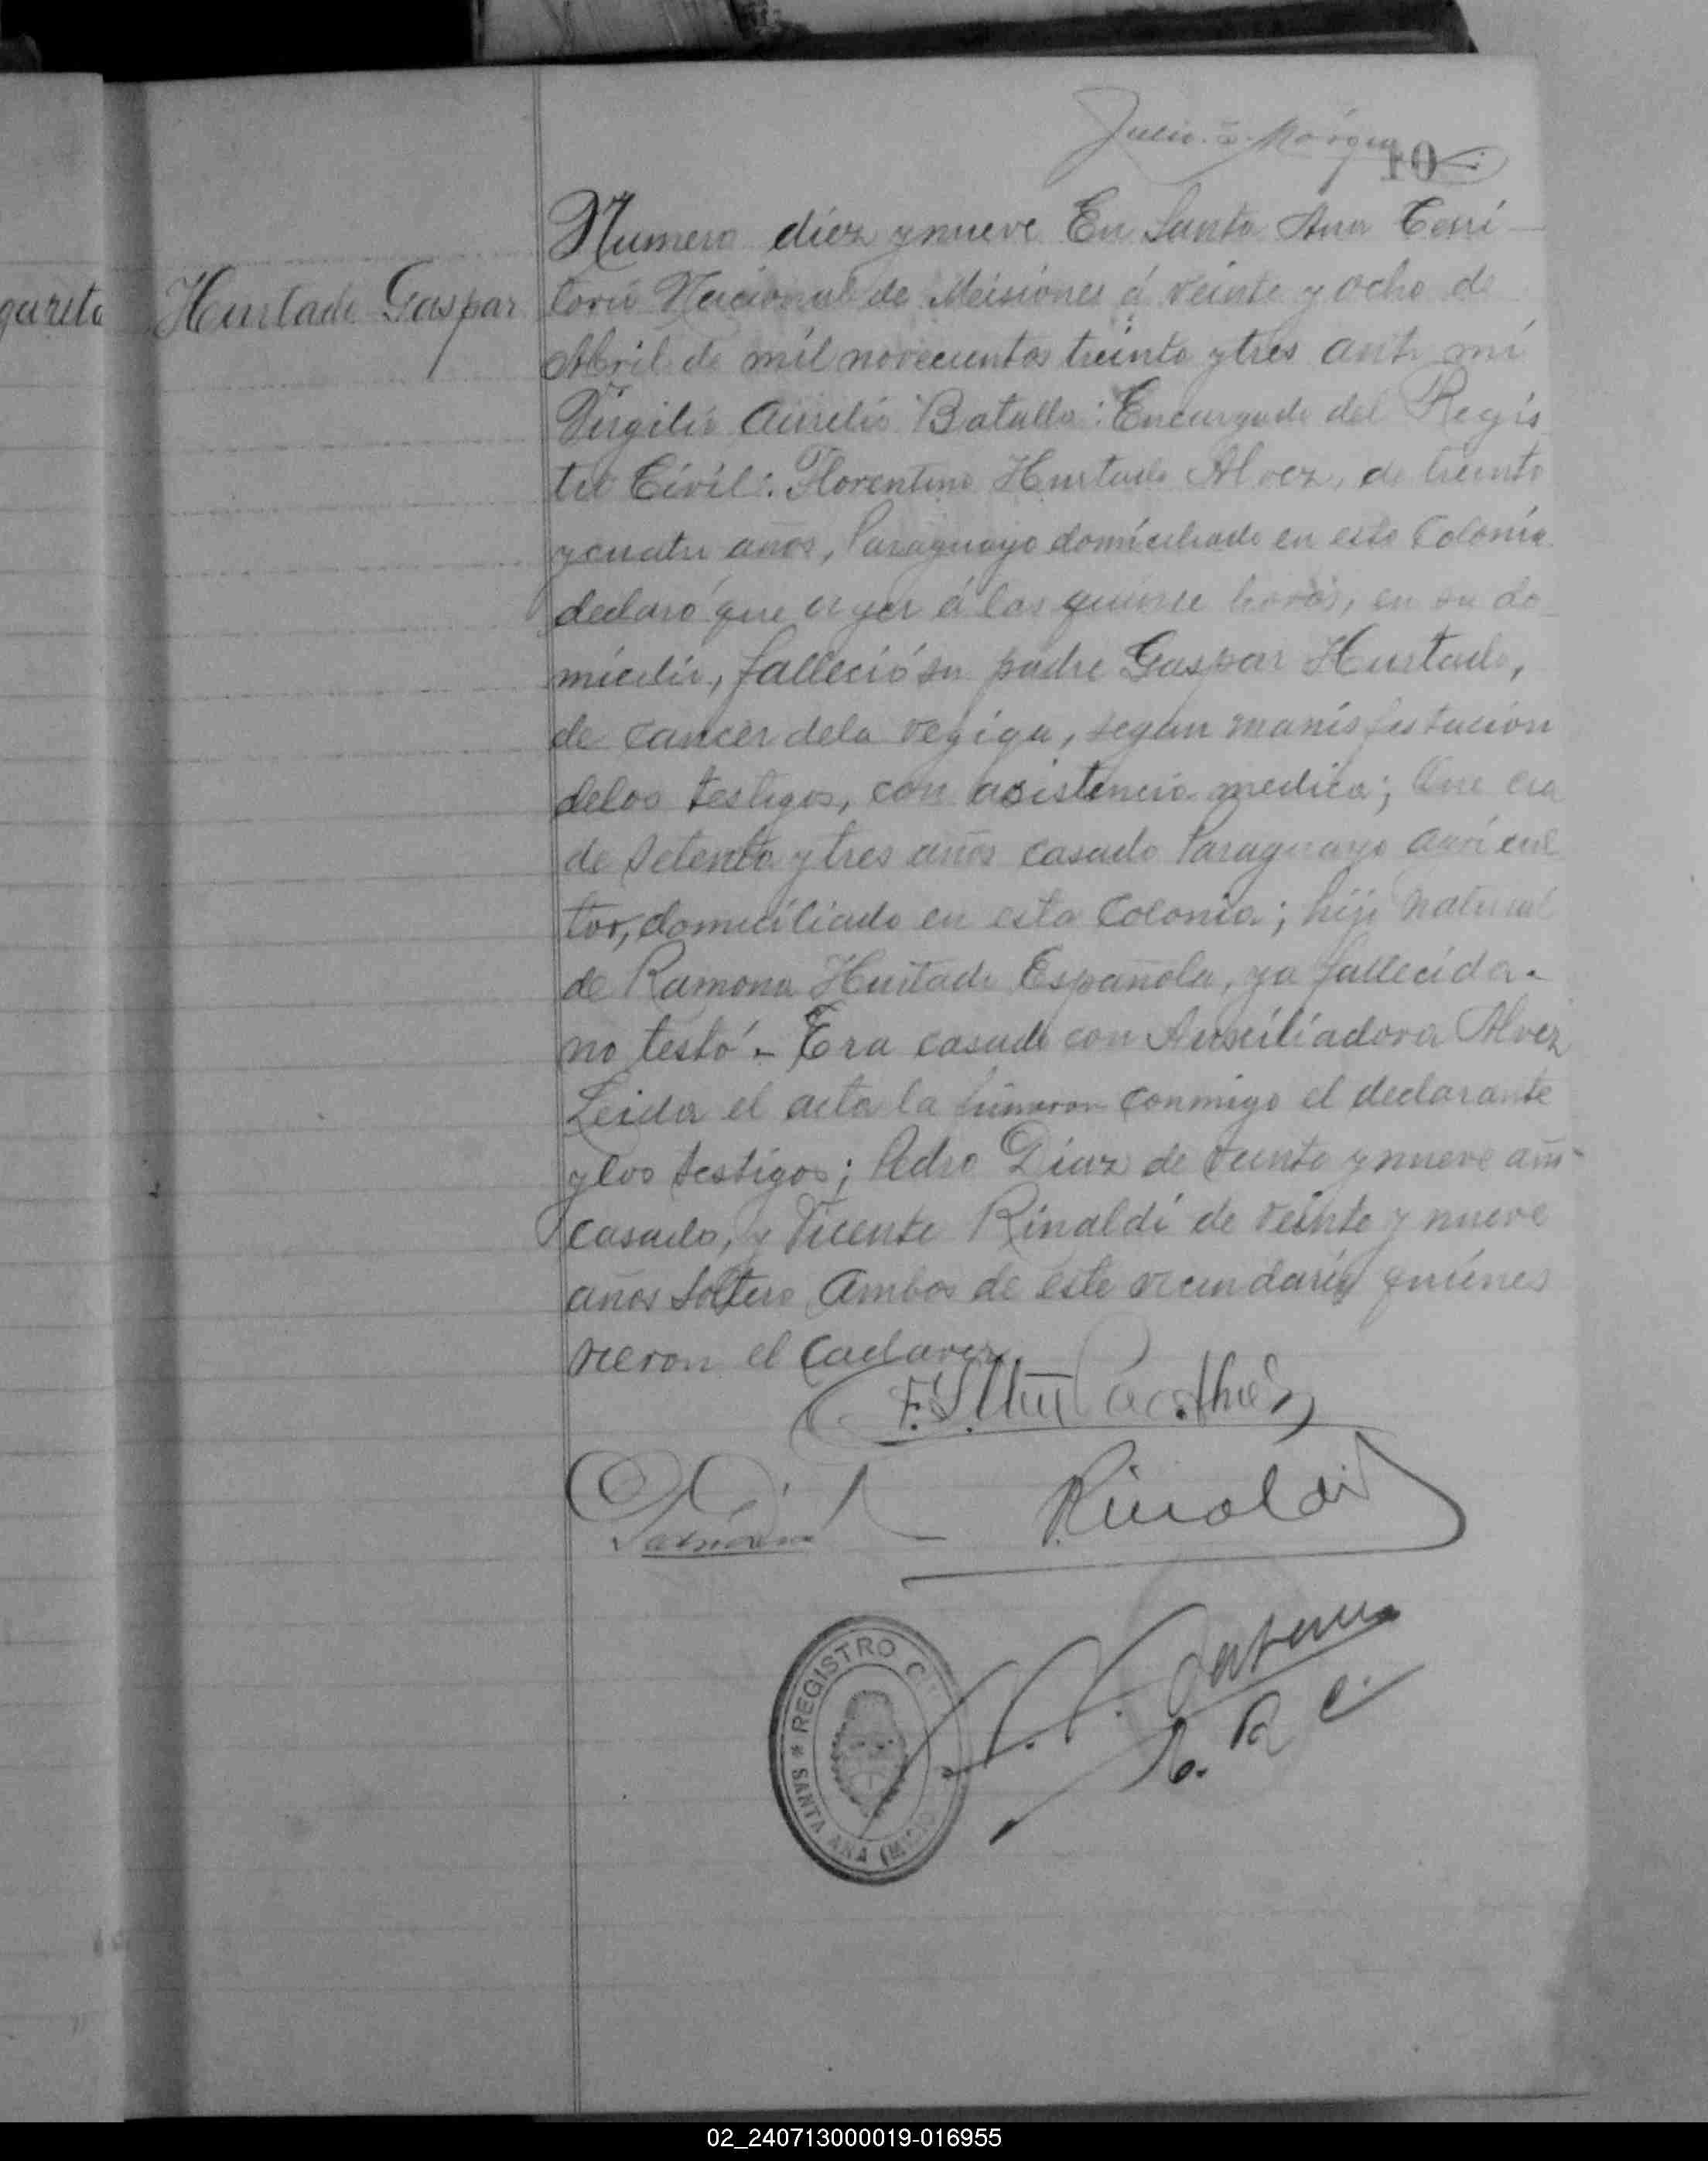 10
gareta
Hurtado Gaspar
Numero diez y nueve En Santa Ana Terri
torio Nacional de Misiones á veinte y ocho de
Abril de mil novecientos treinta y tres ante mi
Virgilio Aurelio Batalla: Encargado del Regis
tro Civil: Florentino Hurtado Alvez, de treinta
y cuatro años, Paraguayo domiciliado en esta Colonia
declaró que ayer á las quinse horas, en su do
micilio, falleció su padre Gaspar Hurtado,
de cancer dela vegiga, segun manisfestacion
delos testigos, con asistencia medica; Que era
de setenta y tres años casado Paraguayo agricul
tor, domiciliado en esta Colonia; hijo natural
de Ramona Hurtado Española, ya fallecida.
no testó. Era casado con Auxiliadora Alvez
Leida el acta la firmaron conmigo el declarante
y los testigos; Pedro Diaz de treinta y nueve años
casado, y Vicente Rinaldi de veinte y nueve
años soltero Ambos de este vecindario quiénes
vieron el Cadaver.
Rinaldi
REGISTRO CIVIL
* SANTA ANA (MISIO
E. R. C.
02_240713000019-016955